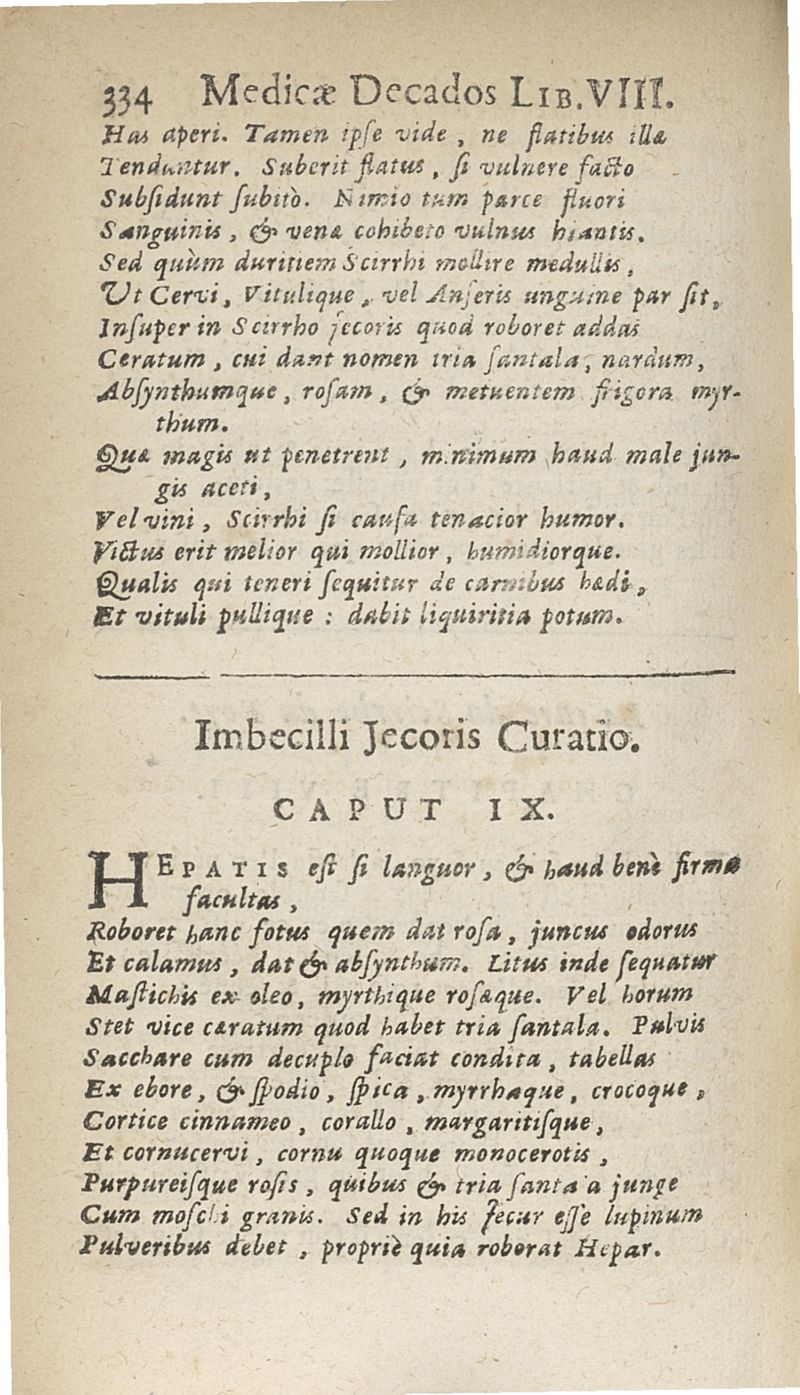 334 Medicæ Decados LIB. VIII.
Has aperi. Tamen ipſe vide, ne flatibus illæ
Tendantur. Suberit flatus, ſi vulnere facto
Subſidunt ſubitò. Nimio tum parce fluori
Sanguinis, & venæ cohibeto vulnus hiantis.
Sed quùm duritiem Scirrhi mollire medullis,
Ut Cervi, Vitulique, vel Anſeris unguine par ſit,
Inſuper in Scirrho jecoris quod roboret addas
Ceratum, cui dant nomen tria ſantala, nardum,
Abſynthumque, roſam, & metuentem frigora myr-
thum.
Quæ magis ut penetrent, minimum haud male jun-
gis aceti,
Vel vini, Scirrhi ſi cauſa tenacior humor.
Victus erit melior qui mollior, humidiorque.
Qualis qui teneri ſequitur de carnibus hædi,
Et vituli pullique : dabit liquiritia potum.
Imbecilli Jecoris Curatio.
CAPUT IX.
HEPATIS eſt ſi languor, & haud benè firma
facultas,
Roboret hanc fotus quem dat roſa, juncus odorus
Et calamus, dat & abſynthum. Litus inde ſequatur
Maſtichis ex oleo, myrthique roſæque. Vel horum
Stet vice cæratum quod habet tria ſantala. Pulvis
Sacchare cum decuplo faciat condita, tabellas
Ex ebore, & ſpodio, ſpica, myrrhaque, crocoque,
Cortice cinnameo, corallo, margaritiſque,
Et cornucervi, cornu quoque monocerotis,
Purpureiſque roſis, quibus & tria ſantala junge
Cum moſchi granis. Sed in his Jecur eſſe lupinum
Pulveribus debet, propriè quia roborat Hepar.